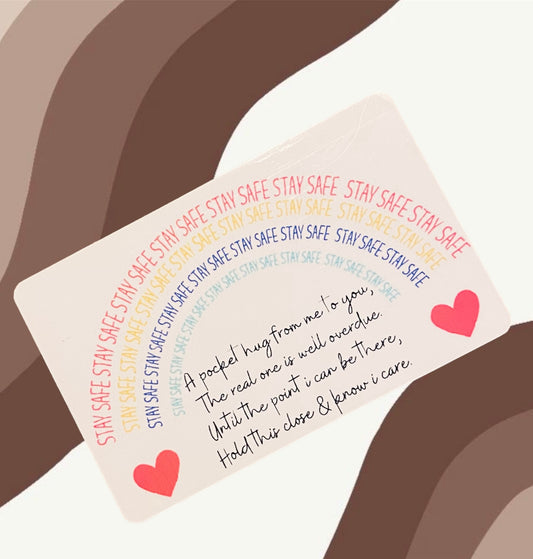 STAY SAFE STAY SAFE STAY SAFE STAY SAFE STAY SAFE STAY SAFE STAY SAFE
STAY SAFE STAY SAFE STAY SAFE STAY SAFE STAY SAFE STAY SAFE STAY SAFE
STAY SAFE STAY SAFE STAY SAFE STAY SAFE STAY SAFE STAY SAFE STAY SAFE
STAY SAFE STAY SAFE STAY SAFE STAY SAFE STAY SAFE STAY SAFE STAY SAFE
A pocket hug from me to you,
The real one is well overdue.
Until the point i can be there,
Hold this close & know i care.